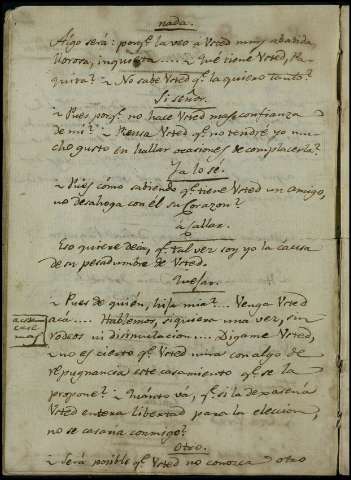 nada.
Algo será: porq.e la veo à Usted muy abatida,
llorosa, inquieta.... ¿Qué tiene Usted, Pa-
quita? ¿No sabe Usted q.e la quiero tanto?
Si señor.
¿Pues porq.e no hace Usted mas confianza
de mi? ¿Piensa Usted q.e no tendré yo mu-
cho gusto en hallar ocasiones de complacerla?
Ya lo sé.
¿Pues cómo sabiendo q.e tiene Usted un amigo,
no desahoga con él su Corazon?
à callar.
Eso quiere decir, q.e tal vez soy yo la causa
de su pesadumbre de Usted.
¿Pues de quién, hija mia?... Venga Usted
acá.... Hablemos, siquiera una vez, sin
rodeos ni disimulacion.... Digame Usted,
¿no es cierto q.e Usted mira con algo de
repugnancia este casamiento q.e se la
propone? ¿Quánto vá, q.e si la dexasen à
Usted entera libertad para la eleccion
no se casaria conmigo?
Otro.
¿Será posible q.e Usted no conozca otro